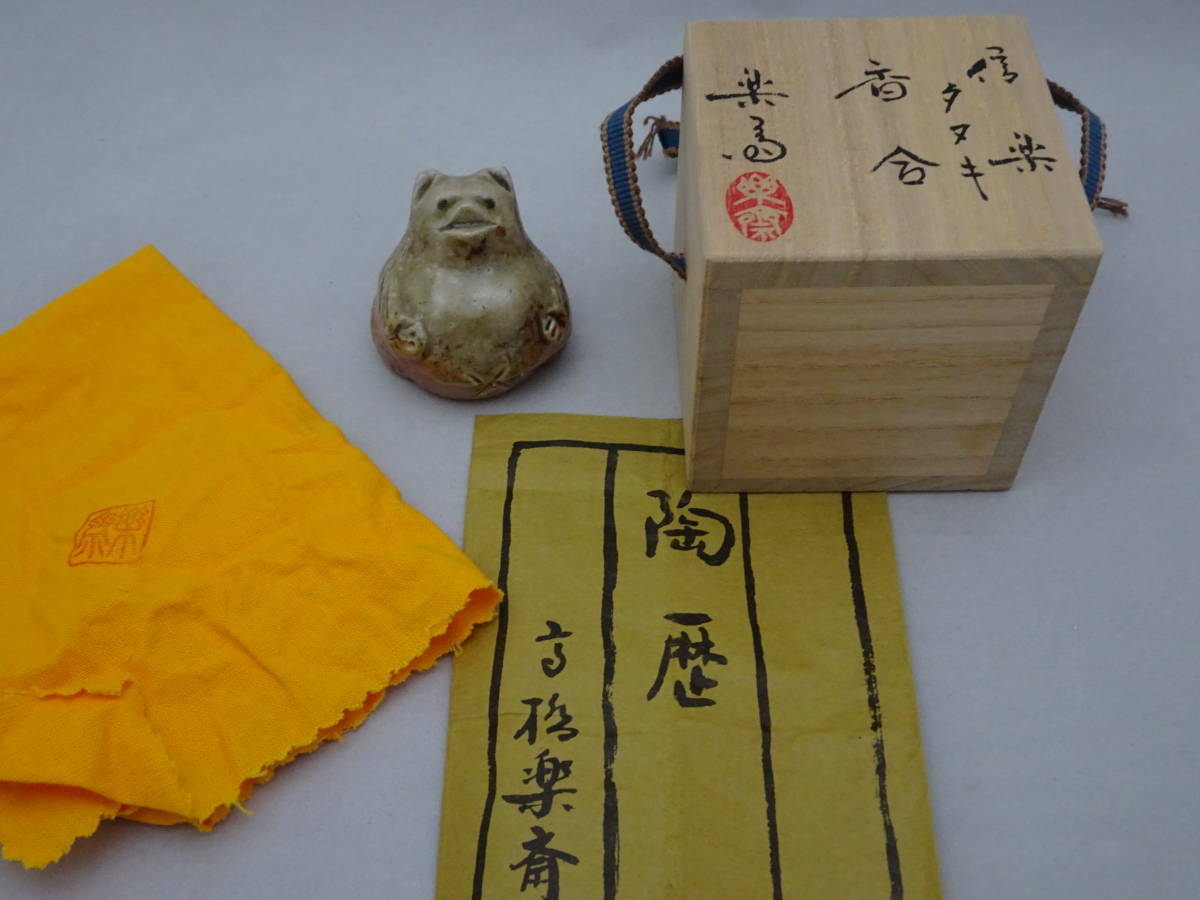 信楽
タヌキ
香合
楽斎
楽斎
陶歴
高橋楽斎
楽斎